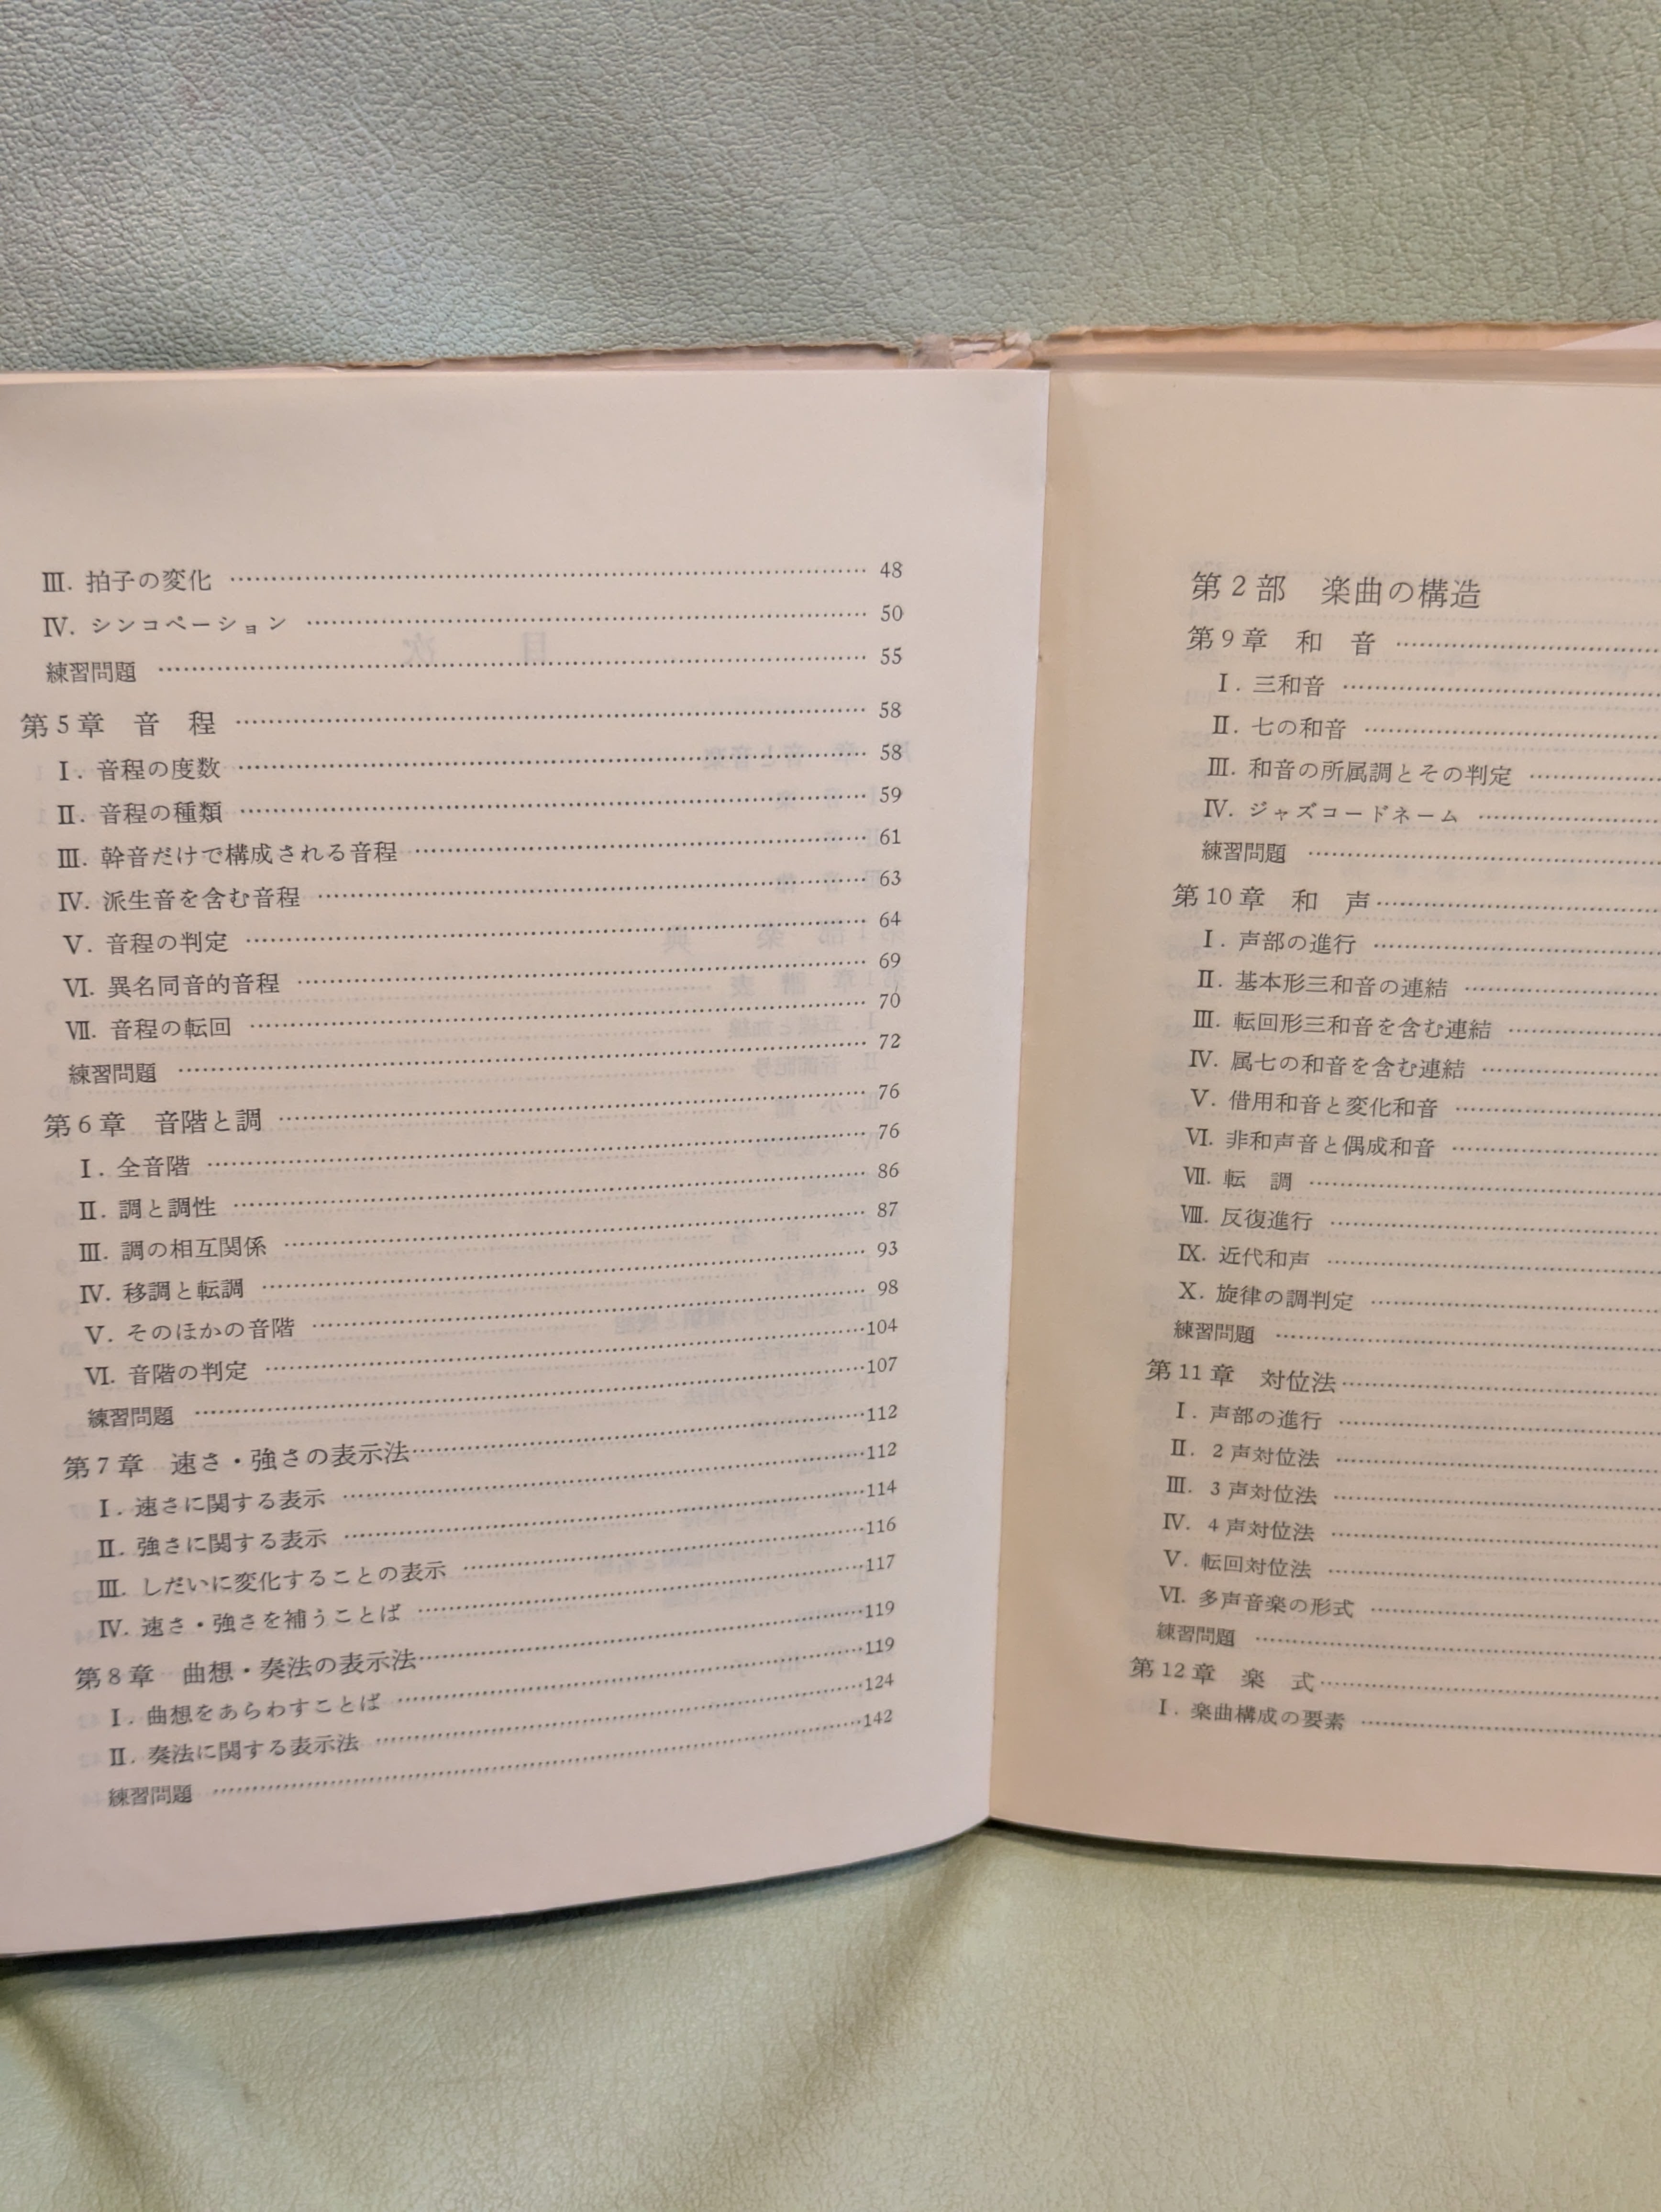 Ⅲ. 拍子の変化 …… 48
Ⅳ. シンコペーション …… 50
練習問題 …… 55
第5章 音 程 …… 58
Ⅰ. 音程の度数 …… 58
Ⅱ. 音程の種類 …… 59
Ⅲ. 幹音だけで構成される音程 …… 61
Ⅳ. 派生音を含む音程 …… 63
Ⅴ. 音程の判定 …… 64
Ⅵ. 異名同音的音程 …… 69
Ⅶ. 音程の転回 …… 70
練習問題 …… 72
第6章 音階と調 …… 76
Ⅰ. 全音階 …… 76
Ⅱ. 調と調性 …… 86
Ⅲ. 調の相互関係 …… 87
Ⅳ. 移調と転調 …… 93
Ⅴ. そのほかの音階 …… 98
Ⅵ. 音階の判定 …… 104
練習問題 …… 107
第7章 速さ・強さの表示法 …… 112
Ⅰ. 速さに関する表示 …… 112
Ⅱ. 強さに関する表示 …… 114
Ⅲ. しだいに変化することの表示 …… 116
Ⅳ. 速さ・強さを補うことば …… 117
第8章 曲想・奏法の表示法 …… 119
Ⅰ. 曲想をあらわすことば …… 119
Ⅱ. 奏法に関する表示法 …… 124
練習問題 …… 142
第2部 楽曲の構造
第9章 和 音 ……
Ⅰ. 三和音 ……
Ⅱ. 七の和音 ……
Ⅲ. 和音の所属調とその判定 ……
Ⅳ. ジャズコードネーム ……
練習問題 ……
第10章 和 声 ……
Ⅰ. 声部の進行 ……
Ⅱ. 基本形三和音の連結 ……
Ⅲ. 転回形三和音を含む連結 ……
Ⅳ. 属七の和音を含む連結 ……
Ⅴ. 借用和音と変化和音 ……
Ⅵ. 非和声音と偶成和音 ……
Ⅶ. 転 調 ……
Ⅷ. 反復進行 ……
Ⅸ. 近代和声 ……
Ⅹ. 旋律の調判定 ……
練習問題 ……
第11章 対位法 ……
Ⅰ. 声部の進行 ……
Ⅱ. 2声対位法 ……
Ⅲ. 3声対位法 ……
Ⅳ. 4声対位法 ……
Ⅴ. 転回対位法 ……
Ⅵ. 多声音楽の形式 ……
練習問題 ……
第12章 楽 式 ……
Ⅰ. 楽曲構成の要素 ……